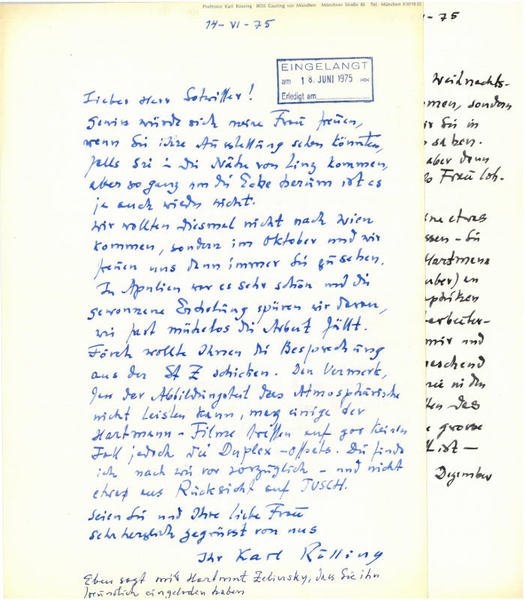 Professor Karl Rössing 8035 Gauting vor München Münchner Straße
14-VI-75
EINGELANGT
am 18. JUNI 1975
Erledigt am
Lieber Herr
Gewiss würde sich meine Frau freuen,
wenn Sie ihre Ausstellung sehen könnten,
falls Sie in die Nähe von Linz kommen,
aber so ganz um die Ecke herum ist es
ja auch wieder nicht.
Wir wollten diesmal nicht nach Wien
kommen, sondern im Oktober und wir
freuen uns dann immer Sie zu sehen.
In Apulien war es sehr schön und die
gewonnene Erholung spüren wir daran,
wie fast mühelos die Arbeit fällt.
wollte Ihnen die Besprechung
aus der St Z schicken. Den Vermerk,
den der Abbildungsteil das Atmosphärische
nicht leisten kann, mag einige der
Hartmann-Filme treffen auf gar keinen
Fall jedoch die Duplex-Offsets. Die finde
ich nach wie vor vorzüglich - und nicht
etwa aus Rücksicht auf TUSCH.
Seien Sie und Ihre liebe Frau
sehr herzlich gegrüsst von uns
Ihr Karl Rössing
Eben sagt mir Hartmut Zelinsky, dass Sie ihn
freundlich eingeladen haben
- 75
Weihnachts-
men, sondern
Sie in
sehen.
aber dann
Frau Loh-
ne etwas
ssen - Sie
Hartmanns
uber) an
arbeiter-
mir und
aschend
sie in den
ten das
e grosse
List -
Dezember